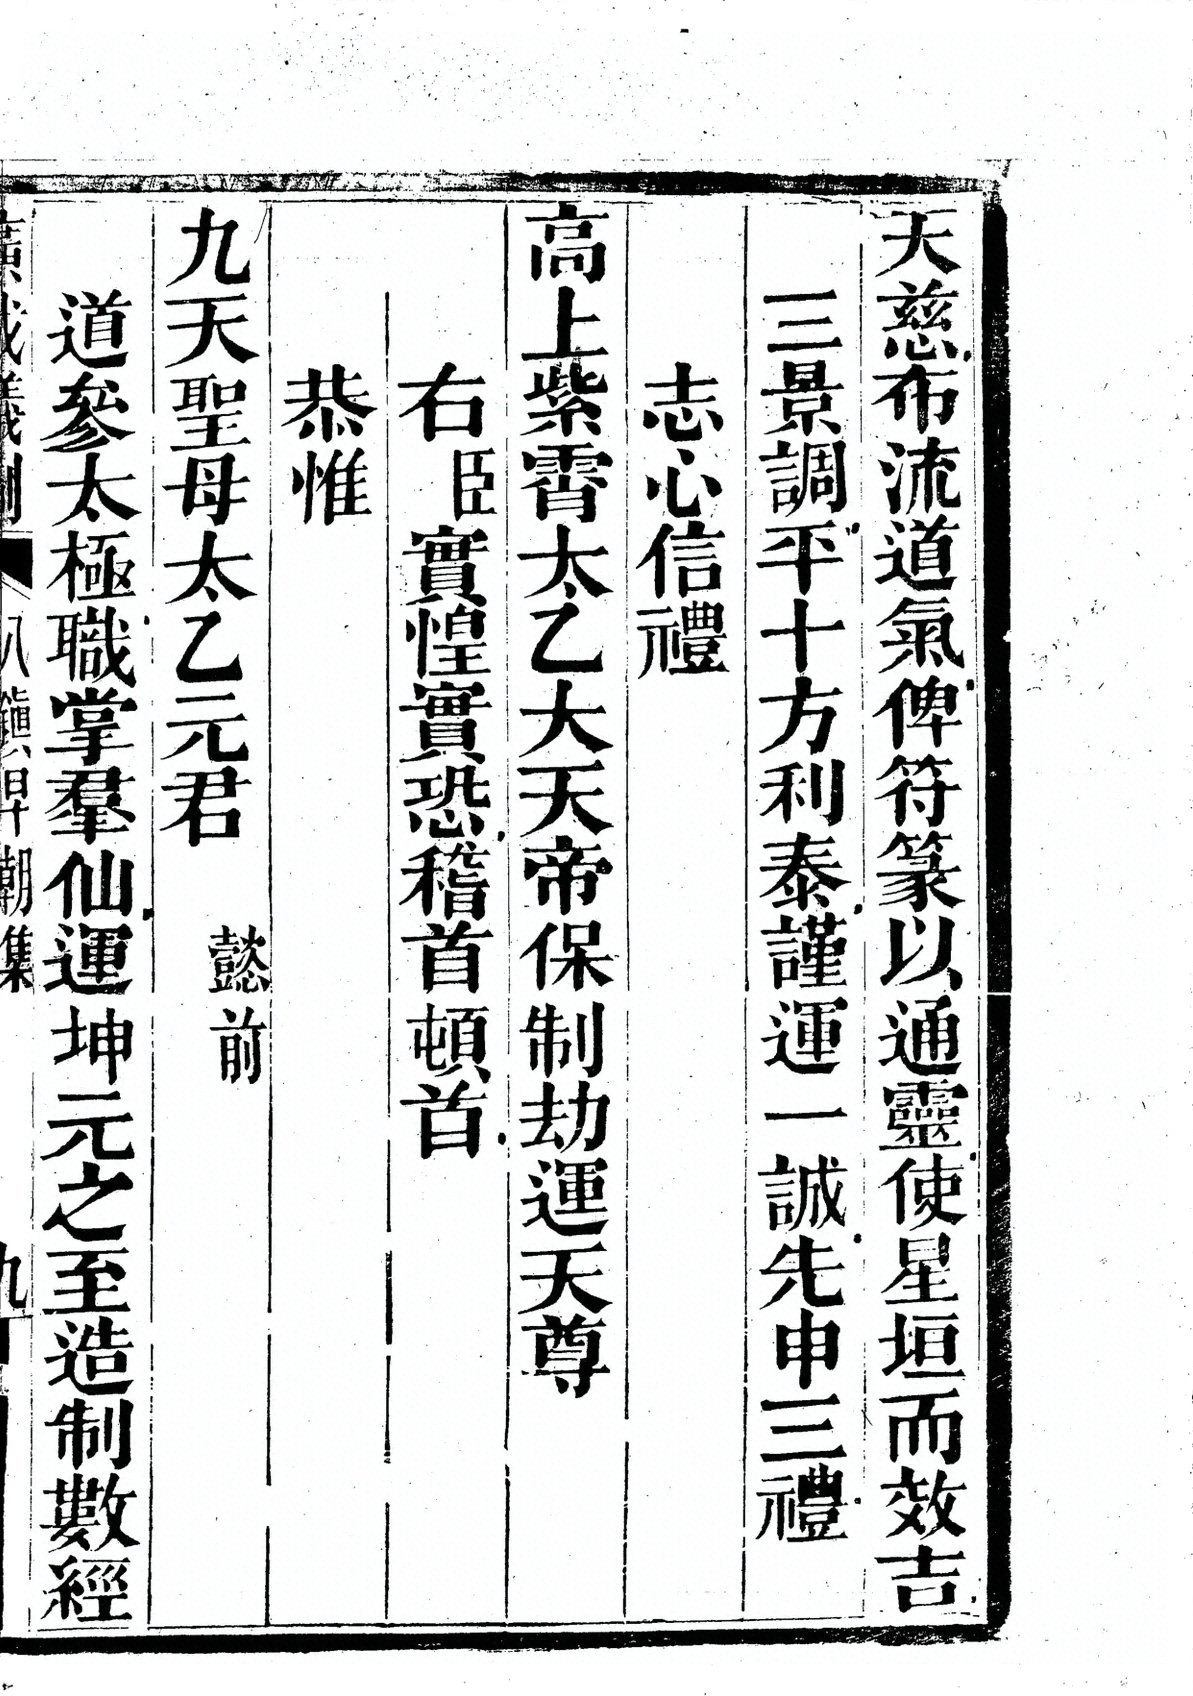 天慈布流道氣俾符篆以通靈使星垣而效吉
三景調平十方利泰謹運一誠先申三禮
志心信禮
高上紫霄太乙大天帝保制劫運天尊
右臣實惶實恐稽首頓首
恭惟
九天聖母太乙元君 懿前
道參太極職掌羣仙運坤元之至造制數經
廣成儀制 八鎮 朝集 九